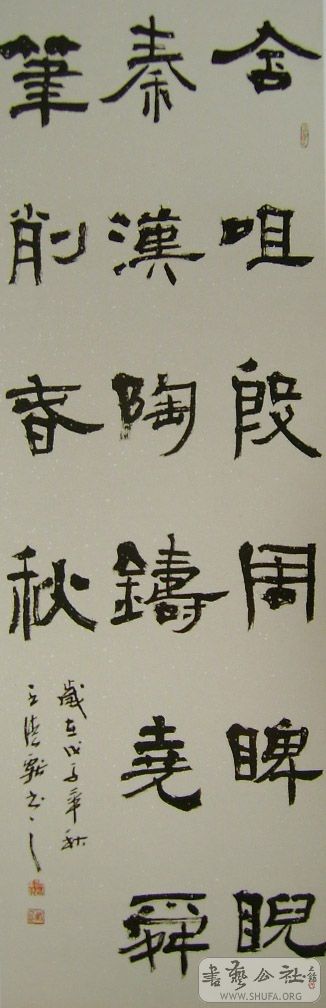 含咀殷周睥睨
秦漢陶鑄堯舜
筆削春秋
歲在戊子年秋
書藝公社
WWW.SHUFA.ORG